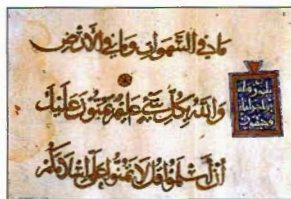 مَا فِي السَّمَوَاتِ وَمَا فِي الْأَرْضِ
وَاللَّهُ بِكُلِّ شَيْءٍ عَلِيمٌ يَمُنُّونَ عَلَيْكَ
أَنْ أَسْلَمُوا قُلْ لَا تَمُنُّوا عَلَيَّ إِسْلَامَكُمْ